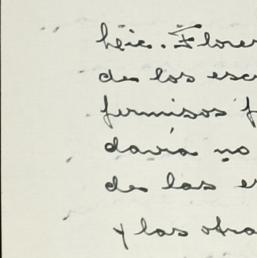 héic. Flores
des los esc
fermisos f
davía no
des las e
y las otra